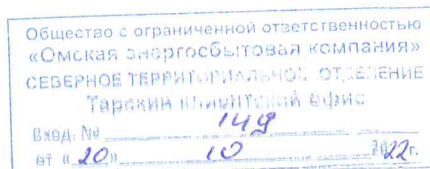 Общество с ограниченной ответственностью
«Омская энергосбытовая компания»
СЕВЕРНОЕ ТЕРРИТОРИАЛЬНОЕ ОТДЕЛЕНИЕ
Тарский клиентский офис
Вход. № 149
от «20» 10 2022г.